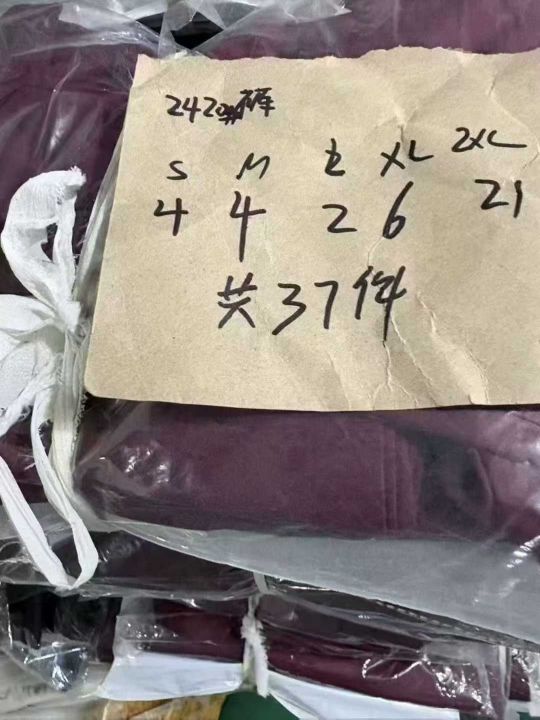 2420裤
S M L XL 2XL
4 4 2 6 21
共37件